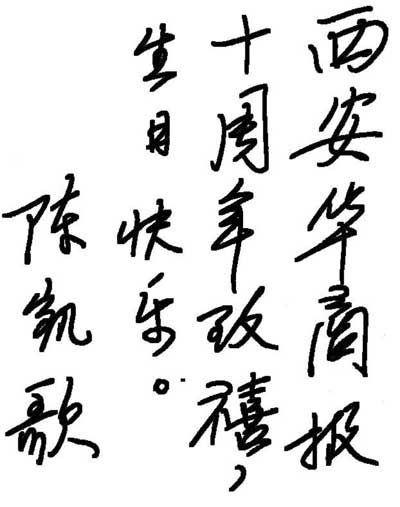 西安华商报
十周年致禧，
生日快乐。
陈凯歌